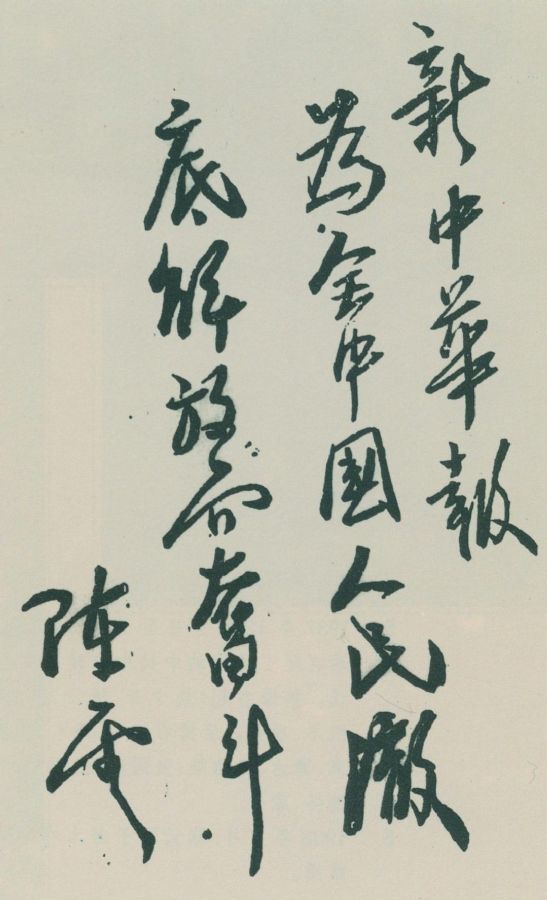 新中華報
為全中國人民澈
底解放而奮斗
陳雲